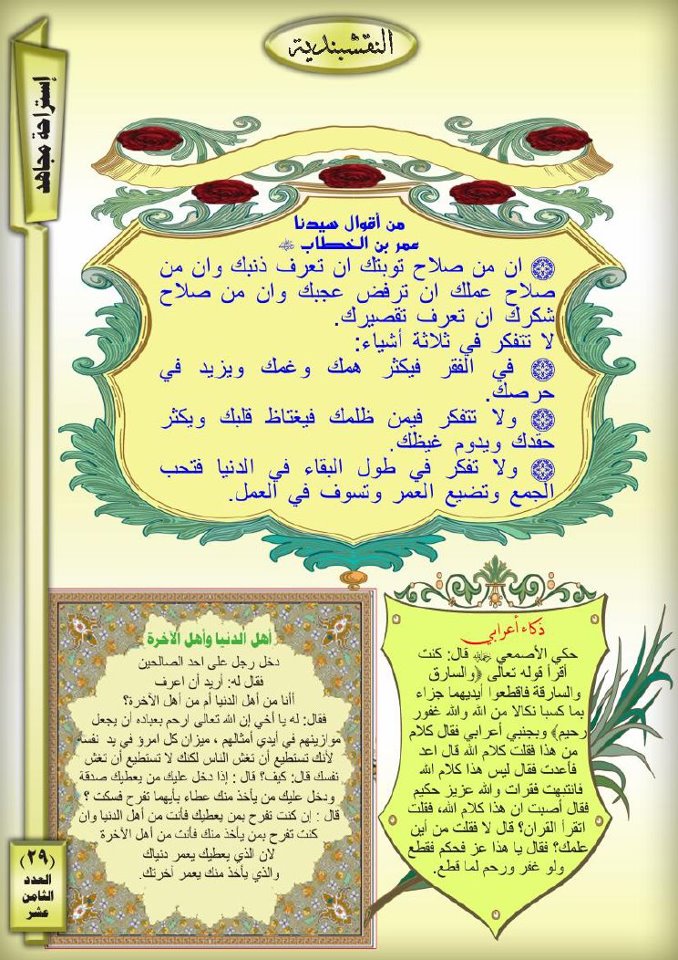 النقشبندية
إستراحة مجاهد
من أقوال سيدنا
عمر بن الخطاب
ان من صلاح توبتك ان تعرف ذنبك وان من
صلاح عملك ان ترفض عجبك وان من صلاح
شكرك ان تعرف تقصيرك.
لا تتفكر في ثلاثة أشياء:
في الفقر فيكثر همك وغمك ويزيد في
حرصك.
ولا تتفكر فيمن ظلمك فيغتاظ قلبك ويكثر
حقدك ويدوم غيظك.
ولا تفكر في طول البقاء في الدنيا فتحب
الجمع وتضيع العمر وتسوف في العمل.
ذكاء أعرابي
حكي الأصمعي قال: كنت
أقرأ قوله تعالى ﴿والسارق
والسارقة فاقطعوا أيديهما جزاء
بما كسبا نكالا من الله والله غفور
رحيم﴾ وبجنبي أعرابي فقال كلام
من هذا فقلت كلام الله قال اعد
فأعدت فقال ليس هذا كلام الله
فانتبهت فقرات والله عزيز حكيم
فقال أصبت ان هذا كلام الله، فقلت
اتقرأ القران؟ قال لا فقلت من أين
علمك؟ فقال يا هذا عز فحكم فقطع
ولو غفر ورحم لما قطع.
أهل الدنيا وأهل الآخرة
دخل رجل على احد الصالحين
فقال له: أريد أن اعرف
أأنا من أهل الدنيا أم من أهل الآخرة؟
فقال: له يا أخي إن الله تعالى ارحم بعباده أن يجعل
موازينهم في أيدي أمثالهم ، ميزان كل امرؤ في يد نفسه
لأنك تستطيع أن تغش الناس لكنك لا تستطيع أن تغش
نفسك قال: كيف؟ قال : إذا دخل عليك من يعطيك صدقة
ودخل عليك من يأخذ منك عطاء بأيهما تفرح فسكت ؟
قال : إن كنت تفرح بمن يعطيك فأنت من أهل الدنيا وان
كنت تفرح بمن يأخذ منك فأنت من أهل الآخرة
لان الذي يعطيك يعمر دنياك
والذي يأخذ منك يعمر آخرتك.
(٢٩)
العدد
الثامن
عشر